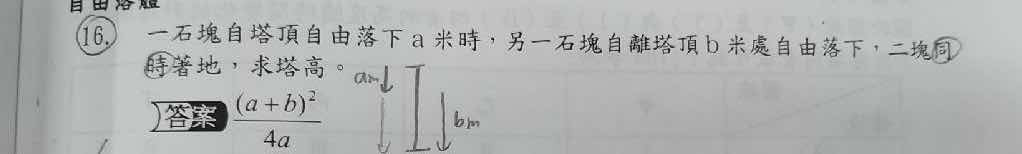 自由落體
16. 一石塊自塔頂自由落下a米時，另一石塊自離塔頂b米處自由落下，二塊同
時著地，求塔高。
am
答案 (a+b)²/4a
bm